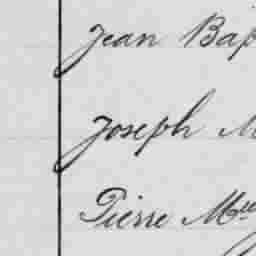 Jean Bap
Joseph M
Pierre M